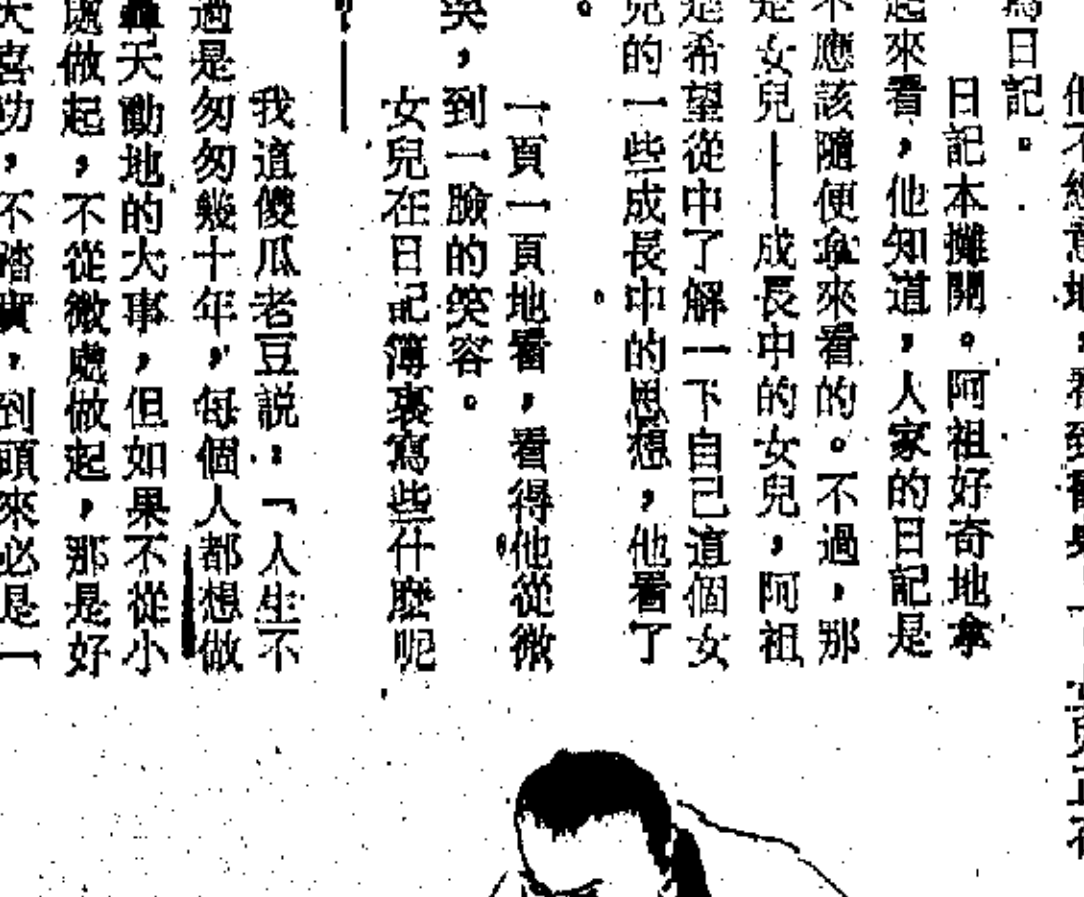 他不經意地，看到書桌
寫日記。
日記本攤開。阿祖好奇地拿
起來看，他知道，人家的日記是
不應該隨便拿來看的。不過，那
是女兒——成長中的女兒，阿祖
是希望從中了解一下自己這個女
兒的一些成長中的思想，他看了
。
一頁一頁地看，看得他從微
笑，到一臉的笑容。
女兒在日記簿裏寫些什麼呢
？——
我這傻瓜老豆説：「人生不
過是匆匆幾十年，每個人都想做
轟天動地的大事，但如果不從小
處做起，不從微處做起，那是好
大喜功，不踏實，到頭來必是一